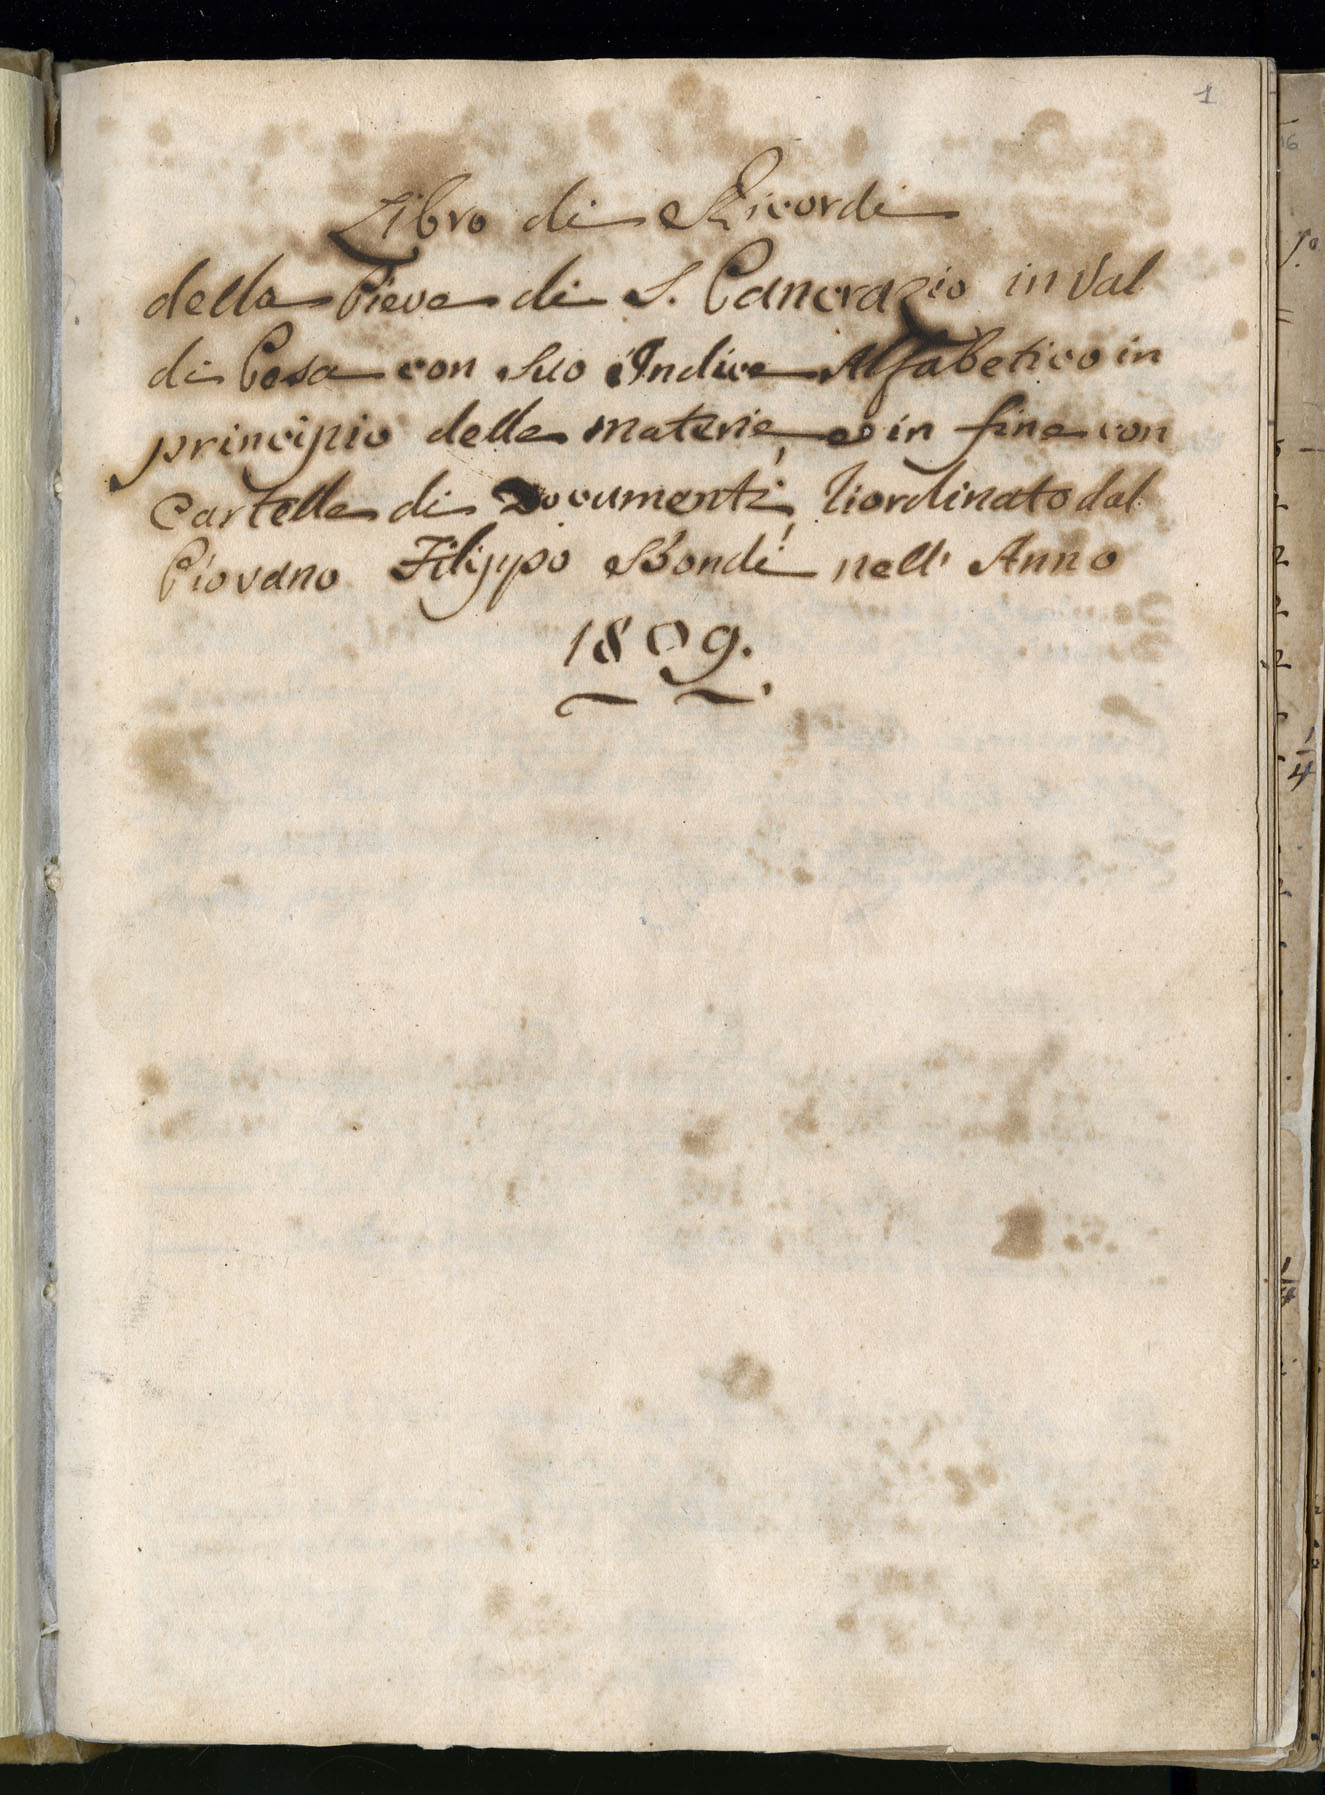 1
Libro di Ricordi
della Pieve di S. Pancrazio in Val
di Pesa con suo Indice Alfabetico in
principio delle materie, e in fine con
Cartelle di Documenti, riordinato dal
Piovano Filippo Bondi nell' Anno
1809.